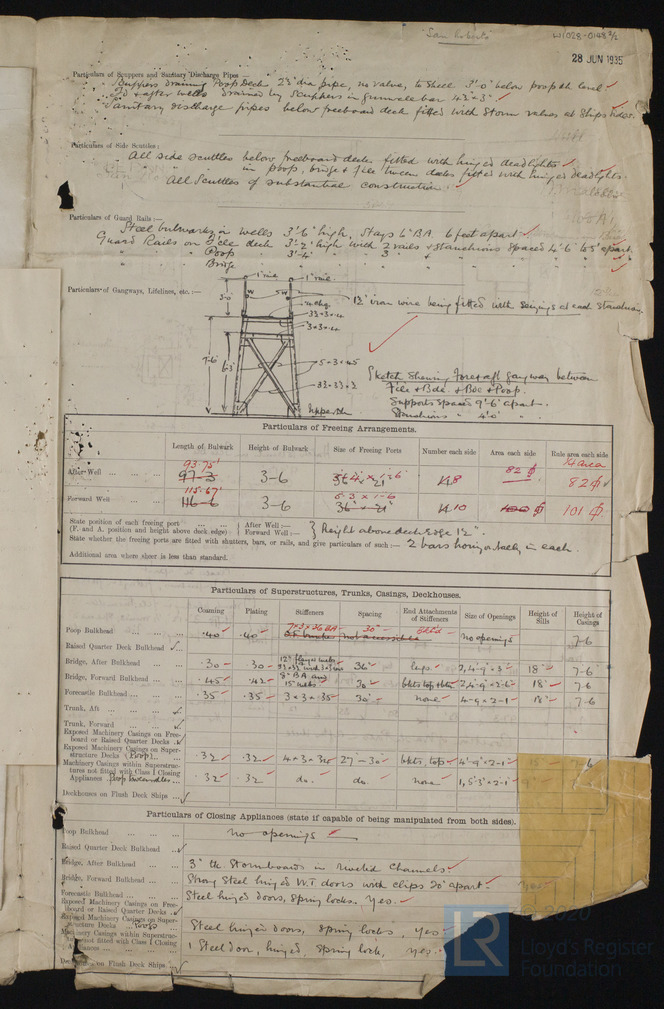 W1028-0148 2/2
28 JUN 1935
Particulars of Scuppers and Sanitary Discharge Pipes —
Scuppers draining Poop Deck 2½" dia pipe, no valve, to shell 3'-0" below poop dk level
Fd & after wells drained by scuppers in gunwale bar 4½ × 3"
Sanitary discharge pipes below freeboard deck fitted with storm valves at ships sides.
Particulars of Side Scuttles :
All side scuttles below freeboard deck fitted with hinged deadlights
" " in poop, bridge & fcle tween decks fitted with hinged deadlights.
All Scuttles of substantial construction.
Particulars of Guard Rails :—
Steel bulwarks in wells 3'-6" high, Stays 6" BA 6 feet apart
Guard Rails on Fcle deck 3'-2" high with 2 rails & stanchions spaced 4'-6" to 5' apart
" " " Poop " 3'-4" " 3 " & " " " "
" " " Bridge " " " " " " " "
Particulars of Gangways, Lifelines, etc. :—
1" wire 1" wire
1½" iron wire being fitted with seizings at each stanchion.
W W
3'-0"
3×3×.4
7'-6"
6'-3"
Upper dk
Sketch shewing Fore & aft gangway between
Fcle & Bdg. & Bdg & Poop.
Supports spaced 9'-6" apart.
Stanchions " 4'-0" "
Particulars of Freeing Arrangements.
Length of Bulwark Height of Bulwark Size of Freeing Ports Number each side Area each side Rule area each side
After Well ... 93.75' 97-3 3-6 8 82 82
Forward Well ... 115.67' 116-6 3-6 5-3 × 1-6 36" × 21" 10 101
State position of each freeing port ... ... After Well :—
(F. and A. position and height above deck edge) Forward Well :— Height above deck edge 12".
State whether the freeing ports are fitted with shutters, bars, or rails, and give particulars of such :— 2 bars horizontally in each.
Additional area where sheer is less than standard.
Particulars of Superstructures, Trunks, Casings, Deckhouses.
Coaming Plating Stiffeners Spacing End Attachments of Stiffeners Size of Openings Height of Sills Height of Casings
Poop Bulkhead ... .40 .40 7×3×.36 BA 30" no openings 7-6
Raised Quarter Deck Bulkhead
Bridge, After Bulkhead ... .30 .30 12" flange webs 36" lugs 2, 4'-9" × 3' 18" 7-6
Bridge, Forward Bulkhead ... .45 .42 8" BA and 15" webs 30 bkts top & btm 2, 4'-9" × 2'-6" 18" 7-6
Forecastle Bulkhead ... .35 .35 3×3×.35 30" none 4-9 × 2-1 18" 7-6
Trunk, Aft
Trunk, Forward
Exposed Machinery Casings on Freeboard or Raised Quarter Decks
Exposed Machinery Casings on Superstructure Decks (Poop) .32 .32 27"–30" bkts, top 4'-9" × 2'-1"
Machinery Casings within Superstructures not fitted with Class I Closing Appliances Poop tweendks .32 .32 do. do. none 1, 5'-3" × 2'-1"
Deckhouses on Flush Deck Ships
Particulars of Closing Appliances (state if capable of being manipulated from both sides).
Poop Bulkhead ... no openings
Raised Quarter Deck Bulkhead
Bridge, After Bulkhead ... 3" th Stormboards in riveted channels
Bridge, Forward Bulkhead ... Strong Steel hinged W.T doors with clips 20" apart. Yes
Forecastle Bulkhead ... Steel hinged doors, spring locks. Yes.
Exposed Machinery Casings on Freeboard or Raised Quarter Decks
Exposed Machinery Casings on Superstructure Decks Poop Steel hinged doors, spring locks, Yes
Machinery Casings within Superstructures not fitted with Class I Closing Appliances 1 Steel door, hinged, spring lock, yes.
Deckhouses on Flush Deck Ships
© 2020
LR
Lloyd's Register
Foundation